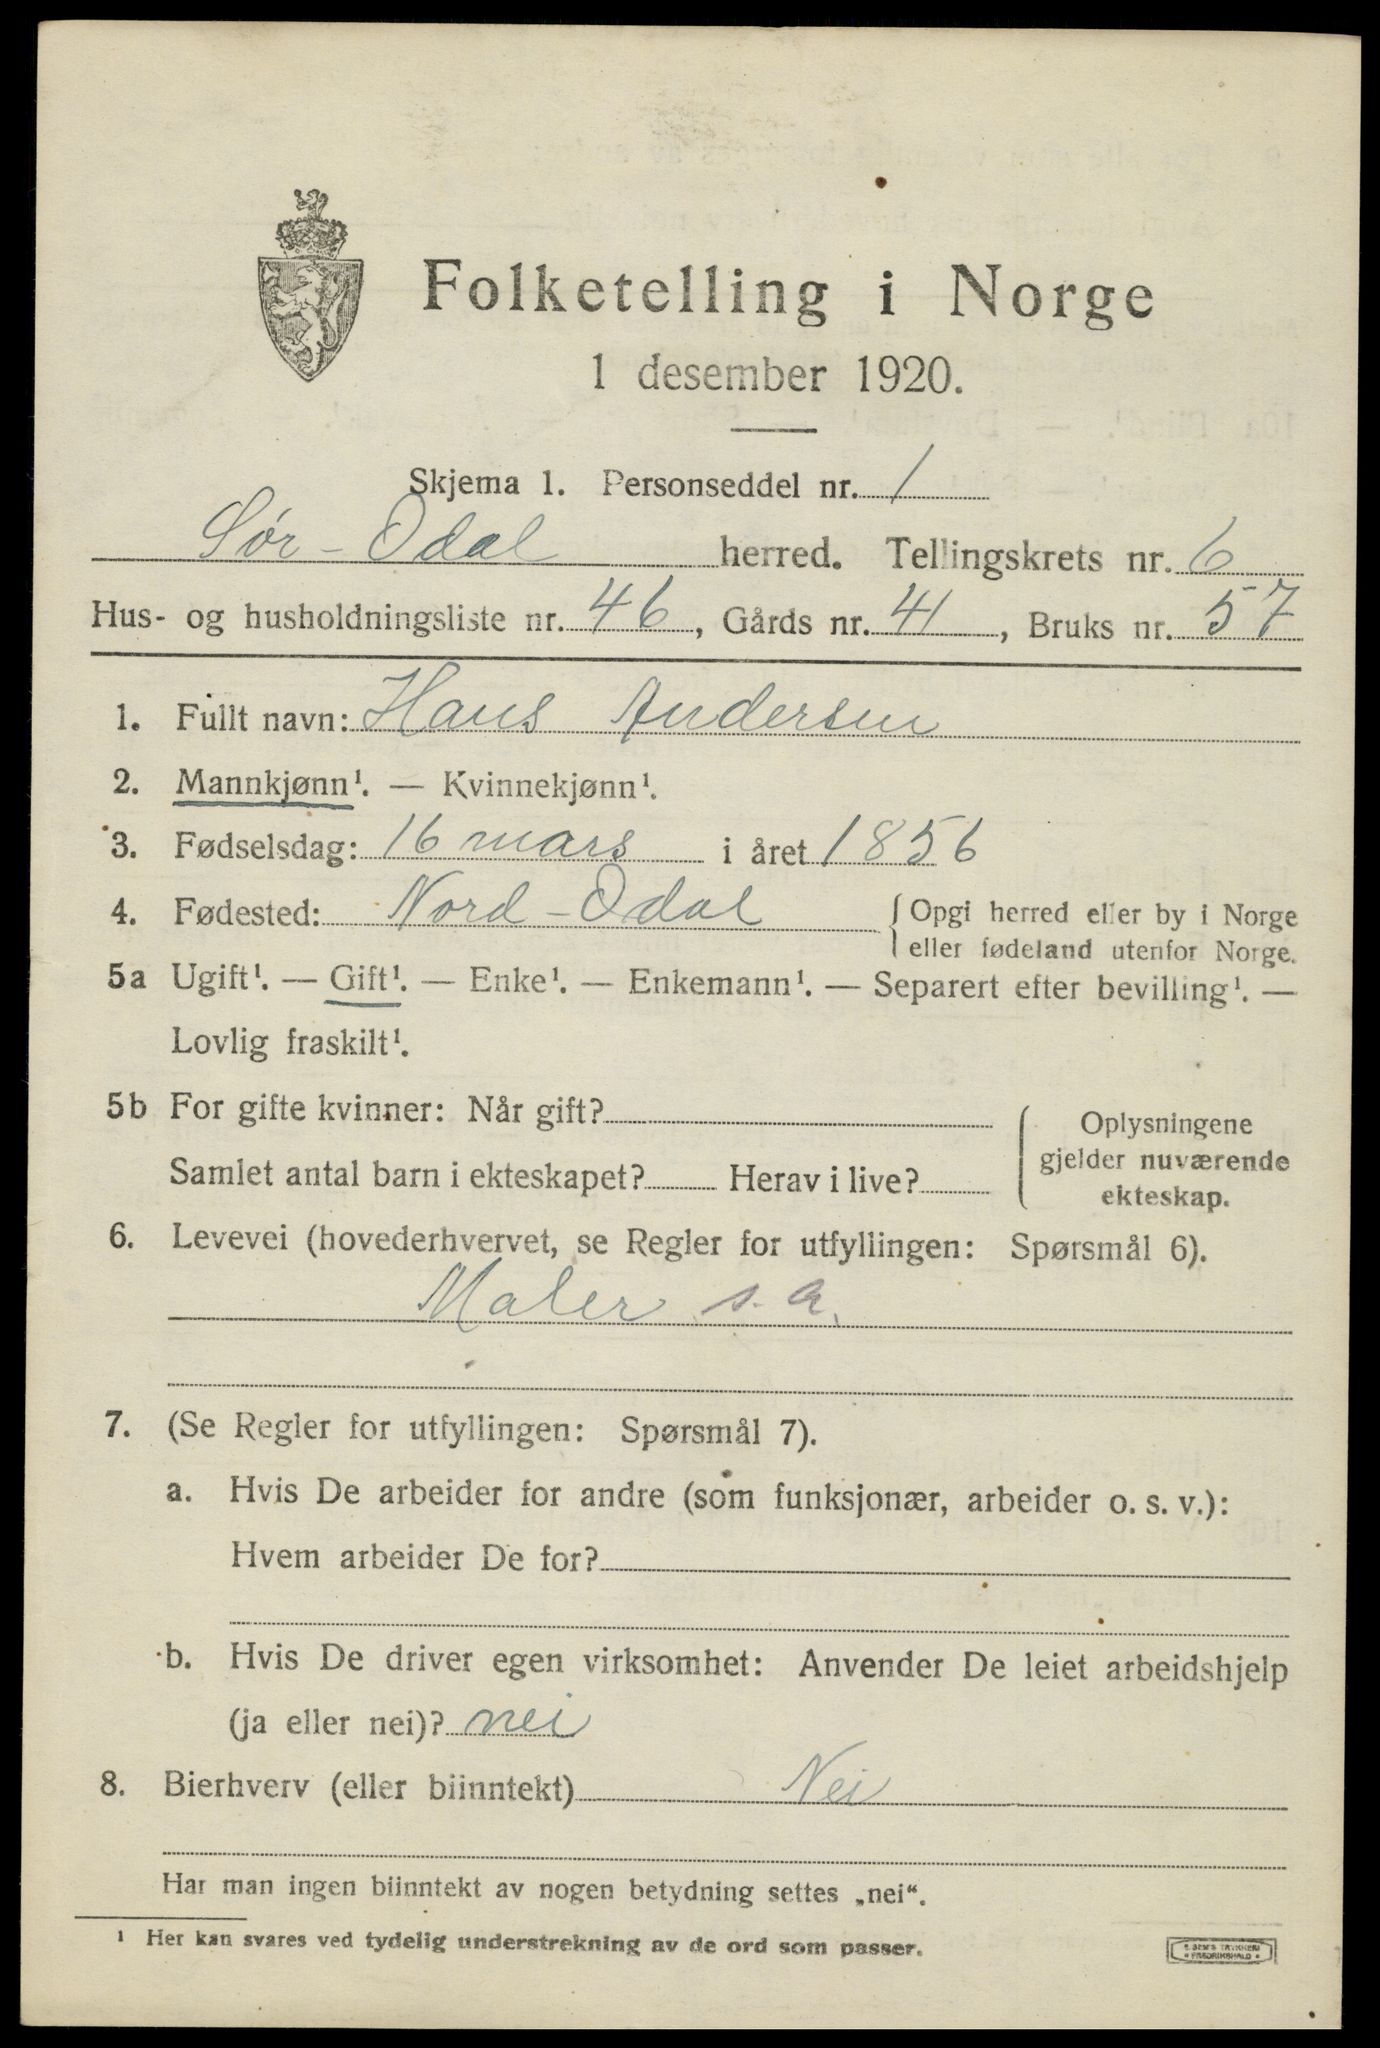 Folketelling i Norge
1 desember 1920.
Skjema 1. Personseddel nr. 1
Sør-Odal herred. Tellingskrets nr. 6
Hus- og husholdningsliste nr. 46, Gårds nr. 41, Bruks nr. 57
1. Fullt navn: Hans Andersen
2. Mannkjønn¹. — Kvinnekjønn¹.
3. Fødselsdag: 16 mars i året 1856
4. Fødested: Nord-Odal {Opgi herred eller by i Norge
eller fødeland utenfor Norge.
5a Ugift¹. — Gift¹. — Enke¹. — Enkemann¹. — Separert efter bevilling¹. —
Lovlig fraskilt¹.
5b For gifte kvinner: Når gift?
Samlet antal barn i ekteskapet? Herav i live?
Oplysningene
gjelder nuværende
ekteskap.
6. Levevei (hovederhvervet, se Regler for utfyllingen: Spørsmål 6).
Maler s.a.
7. (Se Regler for utfyllingen: Spørsmål 7).
a. Hvis De arbeider for andre (som funksjonær, arbeider o. s. v.):
Hvem arbeider De for?
b. Hvis De driver egen virksomhet: Anvender De leiet arbeidshjelp
(ja eller nei)? nei
8. Bierhverv (eller biinntekt) Nei
Har man ingen biinntekt av nogen betydning settes „nei“.
¹ Her kan svares ved tydelig understrekning av de ord som passer.
E. SEM'S TRYKKERI
FREDRIKSHALD